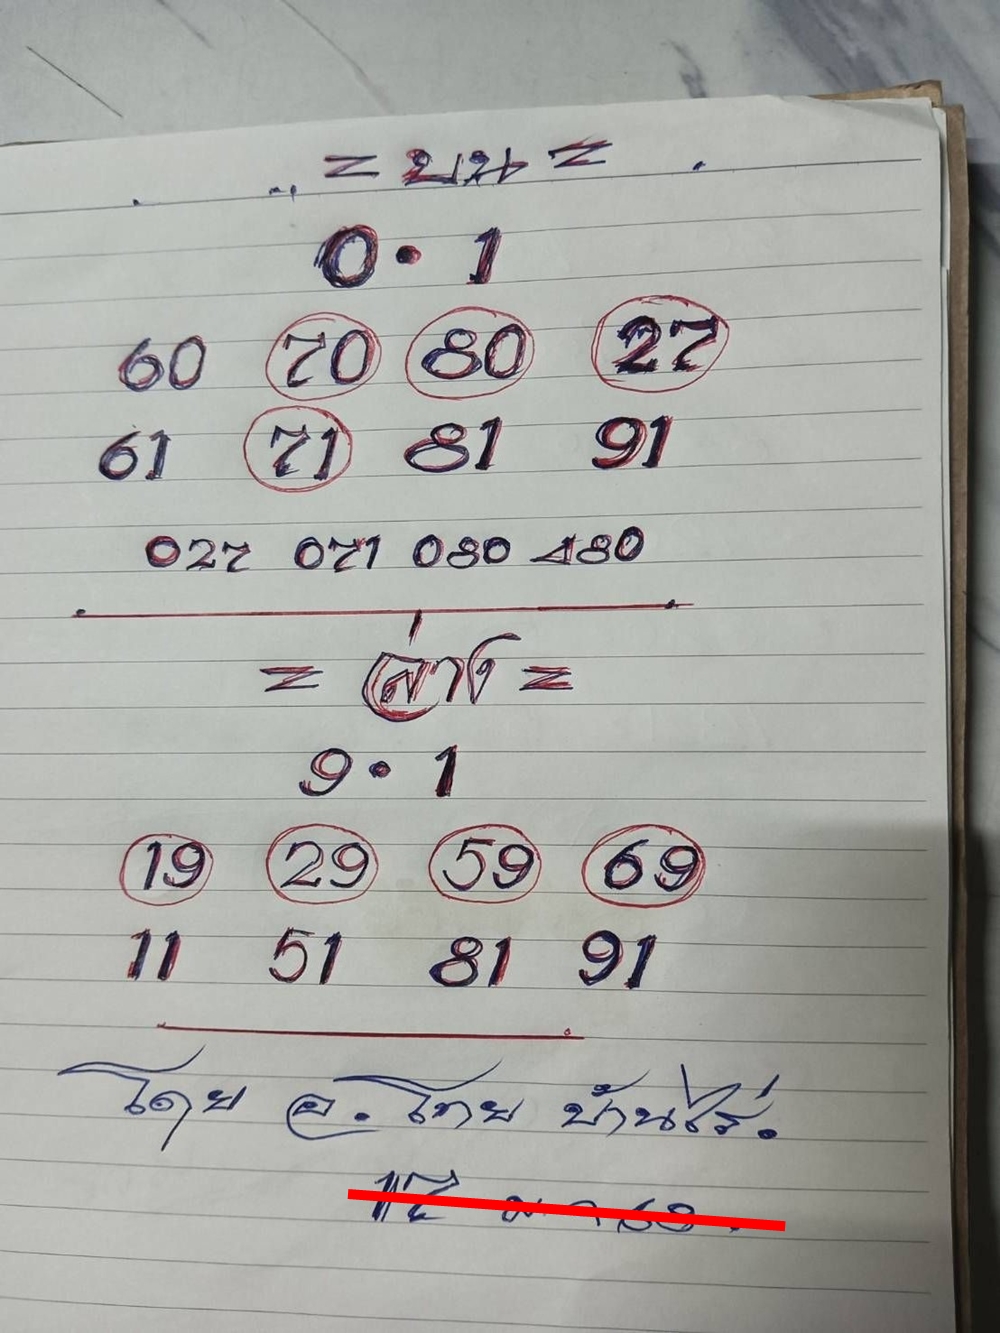 = บน =
0 • 1
60 70 80 27
61 71 81 91
027 071 080 480
= ล่าง =
9 • 1
19 29 59 69
11 51 81 91
โดย อ. ไทย บ้านไร่.
17